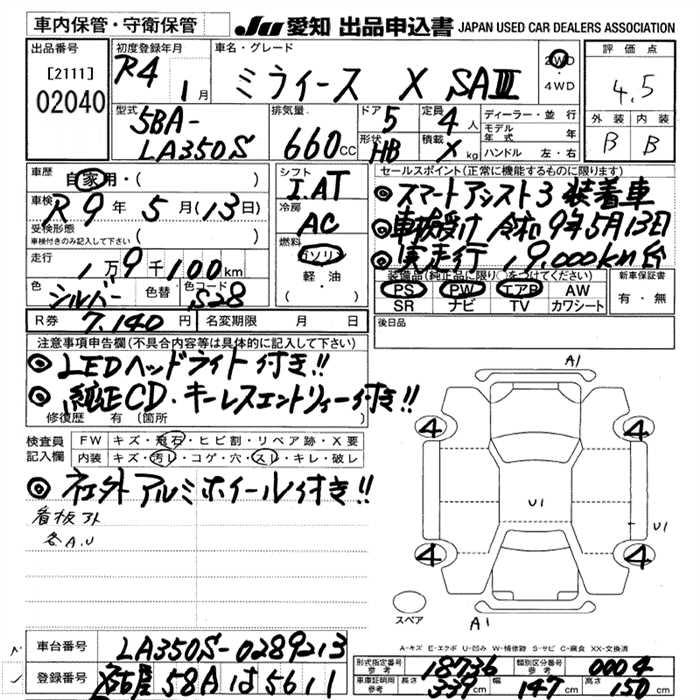 車内保管・守衛保管
JU 愛知 出品申込書 JAPAN USED CAR DEALERS ASSOCIATION
出品番号
[2111]
02040
初度登録年月
R4 1月
車名・グレード
ミライース X SAⅢ
2WD
4WD
評価点
4.5
外装 内装
B B
型式
5BA-
LA350S
排気量
660cc
ドア 5
形状 HB
定員 4人
積載 X kg
ディーラー・並行
モデル年式 年
ハンドル 左・右
車歴
自家用・( )
車検 R9年5月(13日)
受検形態
車検付きのみ記入して下さい ( )
走行
1万9千100km
色 シルバー 色替 色コード S28
R券 7,140円 名変期限 月 日
シフト
I.AT
冷房
AC
燃料
ガソリン
軽油
( )
セールスポイント(正常に機能するものに限ります)
◎スマートアシスト3 装着車
◎車検受け 令和9年5月13日
◎実走行 19.000km台
装備品(純正品に限り○をつけてください)
PS PW エアB AW
SR ナビ TV カワシート
新車保証書
有・無
後日品
注意事項申告欄(不具合内容等は具体的に記入して下さい)
◎LEDヘッドライト付き!!
◎純正CD・キーレスエントリィー付き!!
修復歴 有 (箇所 )
検査員記入欄
FW キズ・飛石・ヒビ割・リペア跡・X要
内装 キズ・汚レ・コゲ・穴・スレ・キレ・破レ
◎社外アルミホイール付き!!
看板アト
各A.U
A1
4 4
U1
U1
4 4
スペア
A1
A-キズ E-エクボ U-凹み W-補修跡 S-サビ C-腐食 XX-交換済
車台番号 LA350S-0289213
登録番号 58A は 5611
形式指定番号参考 18736 類別区分番号参考 0004
車庫証明記入欄参考 長さ 339cm 幅 147cm 高さ 150cm